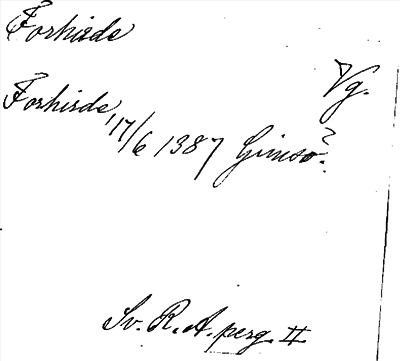 Forhirde
Vg.
Forhirde
17/6 1387 Gimsø?
Sv. R. A. perg. II